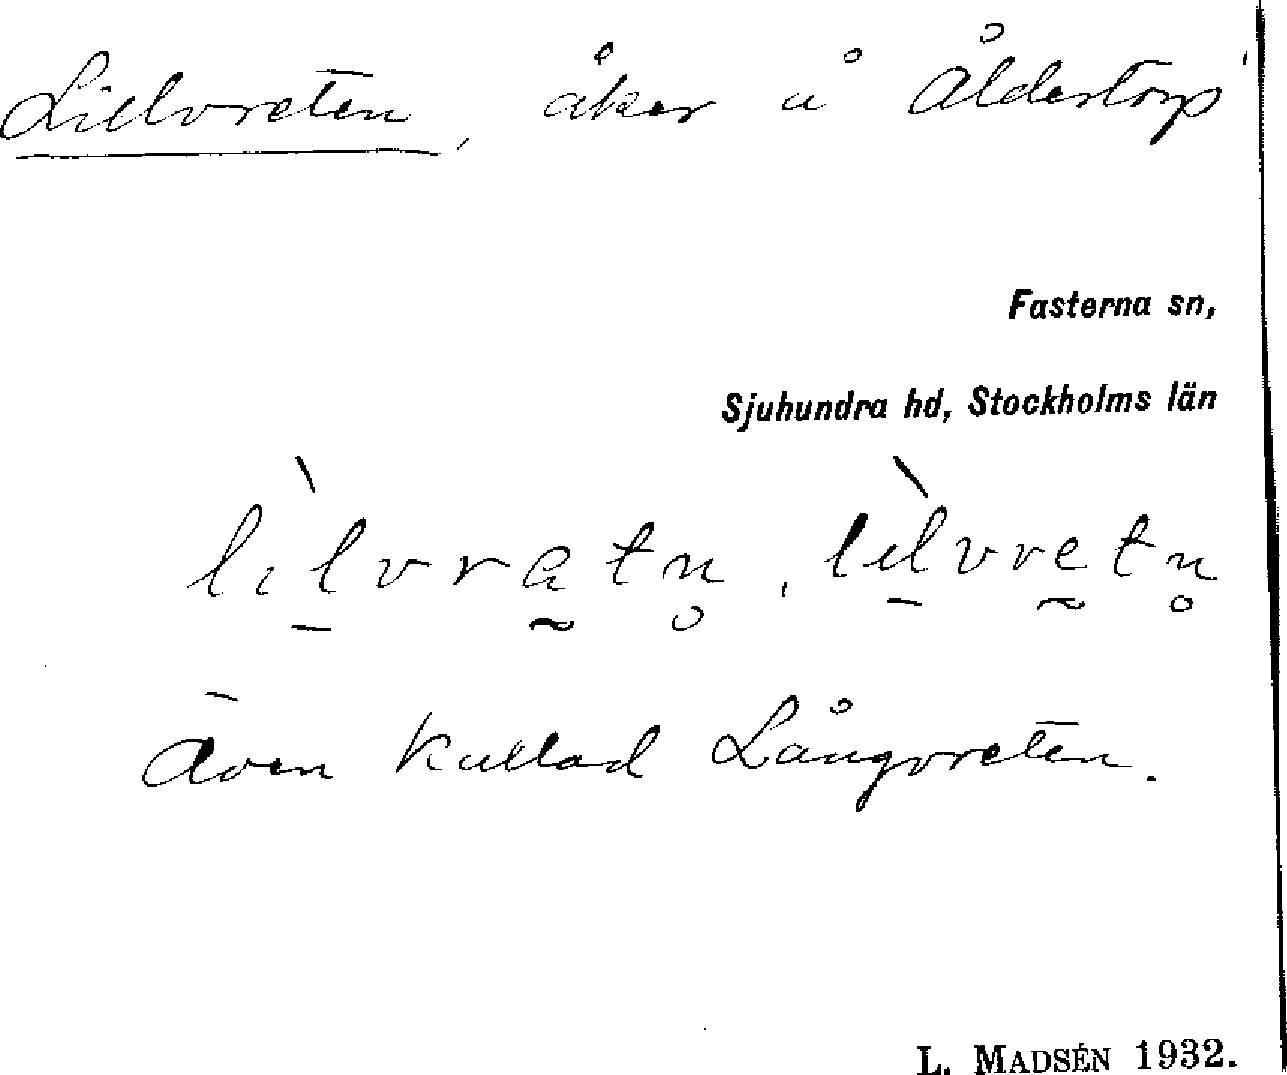 Lillvreten, åker å Åldertorp
Fasterna sn,
Sjuhundra hd, Stockholms län
lìl̠vra̰tn̥, lìl̠vrḛtn̥
Även kallad Långvreten.
L. MADSÉN 1932.